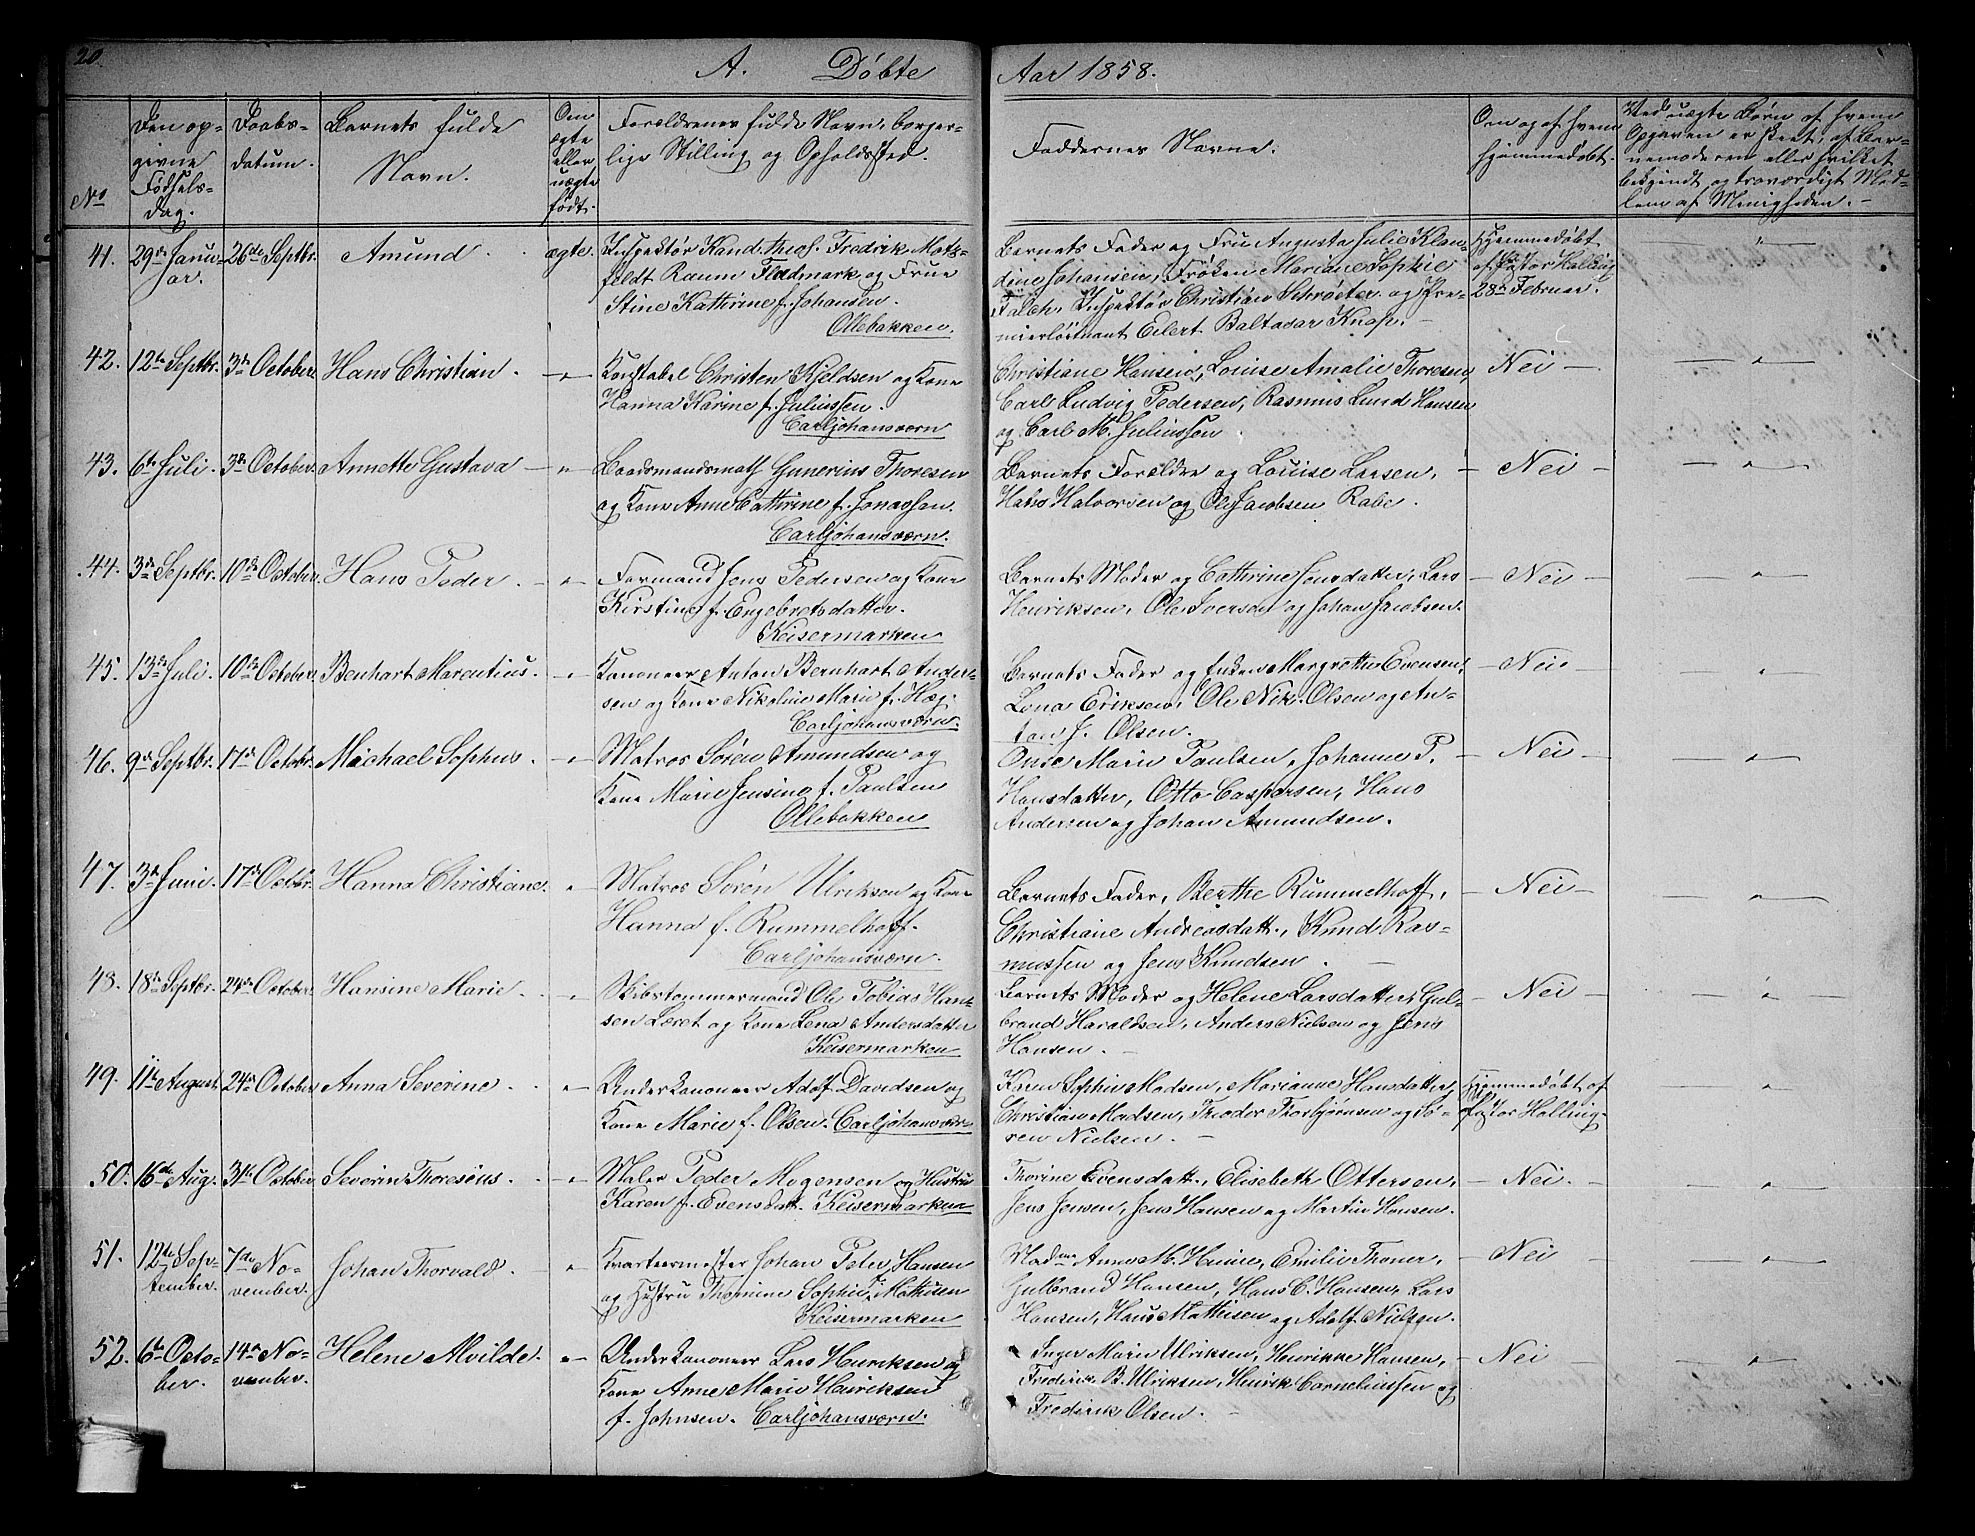 20.
A. Døbte
Aar 1858.
No
Den op-
givne
Fødsels-
dag.
Daabs-
datum.
Barnets fulde
Navn.
Om
ægte
eller
uægte
født.
Forældrenes fulde Navn, borger-
lige Stilling og Opholdssted.
Faddernes Navne.
Om og af hvem
hjemmedøbt.
Ved uægte Børn af hvem
Opgaven er skeet, af Bar-
nemoderen eller hvilket
bekjendt og troværdigt Med-
lem af Menigheden. -
41. 29de Janu-
ar.
26de Septbr.
Amund
ægte.
Inspektør Kand. theol. Fredrik Motz-
feldt Raum Fladmark og Frue
Stine Kathrine f. Johansen.
Ollebakken.
Barnets Fader og Fru Augusta Julie Klau-
dine Johansen, Frøken Mariane Sophie
Falch, Inspektør Christian Schrøeter og Pre-
mierløitnant Eilert Baltasar Knap. -
Hjemmedøbt
af Pastor Halling
28de Februar.
42. 12te Septbr. 3de October. Hans Christian. - " -
Konstabel Christen Kjeldsen og Kone
Hanna Karine f. Juliussen.
Carljohansværn
Christiane Hansen, Louise Amalie Thoresen,
Carl Ludvig Pedersen, Rasmus Lund Hansen
og Carl M. Juliussen.
Nei -
43. 6te Juli. 3de October. Annette Gustava - " -
Baadsmandsmath Gunerius Thoresen
og Kone Anne Cathrine f. Jonassen.
Carljohansværn.
Barnets Forældre og Louise Larsen,
Hans Halvorsen og Ole Jacobsen Rabe.
- Nei -
44. 3de Septbr. 10de October. Hans Peder. - " -
Formand Jens Pedersen og Kone
Kirstine f. Engebretsdatter.
Keisermarken
Barnets Moder og Cathrine Jensdatter, Lars
Henriksen, Ole Iversen og Johan Jacobsen.
- Nei -
45. 13de Juli. 10de October. Benhart Marentius. - " -
Kanoneer Anton Bernhart Ander-
sen og Kone Nikoline Marie f. Hæg.
Carljohansværn.
Barnets Fader og Enken Margrethe Evensen,
Lena Eriksen, Ole Nik. Olsen og An-
ton J. Olsen.
- Nei -
46. 9de Septbr. 17de Octobr. Michael Sophus. - " -
Matros Søren Amundsen og
Kone Marie Jensine f. Paulsen
Ollebakken
Onse Marie Paulsen, Johanne P.
Hansdatter, Otto Caspersen, Hans
Andersen og Johan Amundsen.
- Nei -
47. 3de Juni. 17de Octbr. Hanna Christiane. " -
Matros Søren Ulriksen og Kone
Hanna f. Rummelhoff.
Carljohansværn.
Barnets Fader, Berthe Rummelhoff,
Christiane Andreasdatt., Knud Ras-
mussen og Jens Knudsen. -
- Nei -
48. 18de Septbr. 24de October. Hansine Marie. - " -
Skibstømmermand Ole Tobias Han-
sen Læret og Kone Lena Andersdatter
Keisermarken
Barnets Moder og Helene Larsdatter, Gul-
brand Haraldsen, Anders Nielsen og Jens
Hansen. -
- Nei -
49. 11te August. 24de October. Anna Severine. - " -
Underkanoneer Adolf Davidsen og
Kone Marie f. Olsen. Carljohansværn
Karen Sophie Madsen, Marianne Hansdatter,
Christian Madsen, Theodor Thorbjørnsen og Sø-
ren Nielsen. -
Hjemmedøbt af
Pastor Halling.
50. 16de Aug. 31te October. Severin Thoresøus. - " -
Maler Peder Mogensen og Hustru
Karen f. Evensdatt. Keisermarken
Thorine Evensdatt., Elisebeth Ottersen,
Jens Jensen, Jens Hansen og Martin Hansen.
- Nei. -
51. 12te Sep-
tember.
7de No-
vember.
Johan Thorvald. - " -
Kvarteermester Johan Peter Hansen
og Hustru Thomine Sophie f. Mathisen
Keisermarken
Madme Anne M. Hume, Emilie Thoner,
Gulbrand Hansen, Hans C. Hansen, Lars
Hansen, Hans Mathisen og Adolf Nielsen.
- Nei
52. 6te Octo-
ber.
14de No-
vember.
Helene Alvilde. " -
Underkanoneer Lars Henriksen og
Kone Anne Marie Henriksen
f. Johnsen. Carljohansværn.
Inger Marie Ulriksen, Henrikke Hansen,
Frederik B. Ulriksen, Henrik Corneliussen og
Frederik Olsen. -
- Nei -